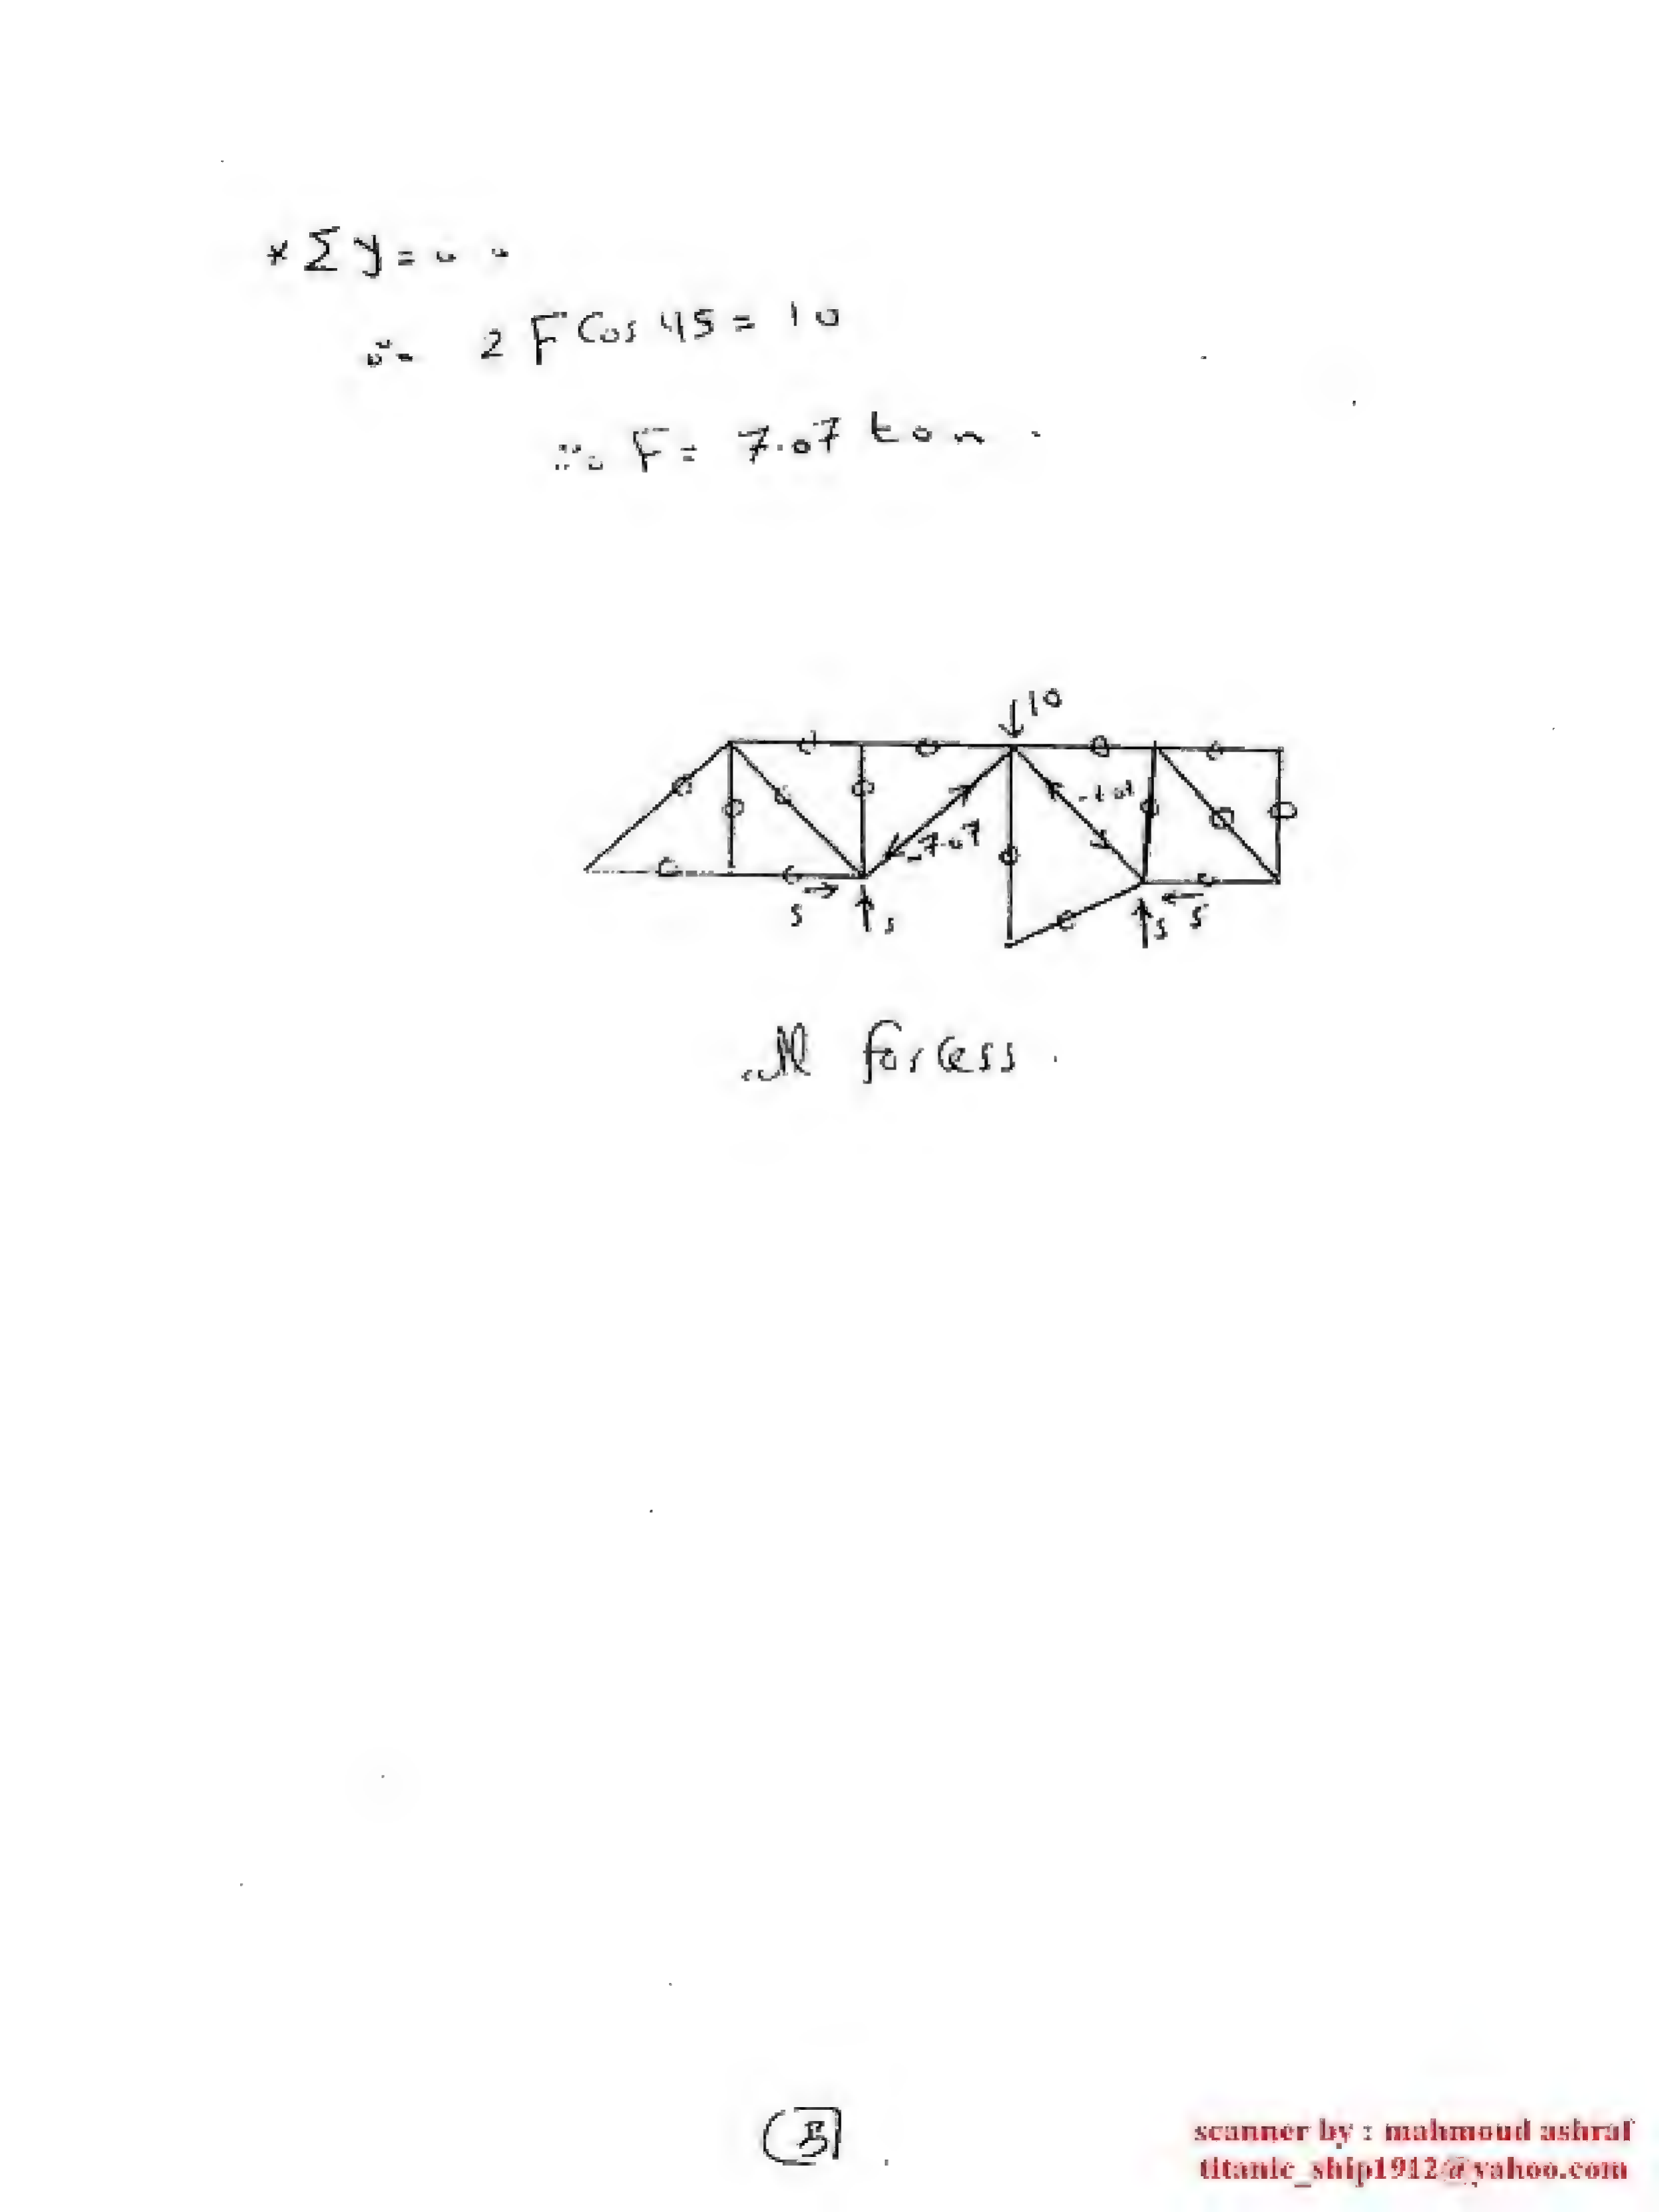 * Σy = 0.0
∴ 2 F Cos 45 = 10
∴ F = 7.07 ton.
10
-7.07
5
5
5
5
forcess.
3
scanner by : mahmoud ashraf
titanic_ship1912@yahoo.com